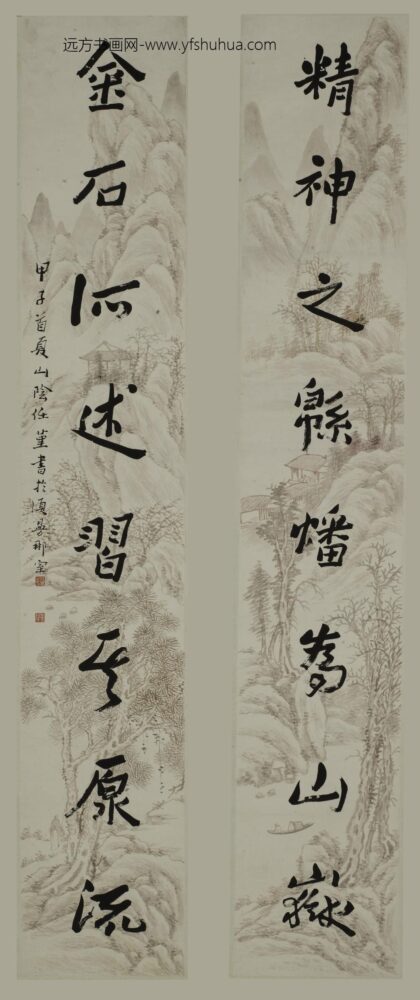 远方书画网-www.yfshuhua.com
精神之緜燔為山嶽
金石所述習其原流
甲子首夏山陰任堇書於